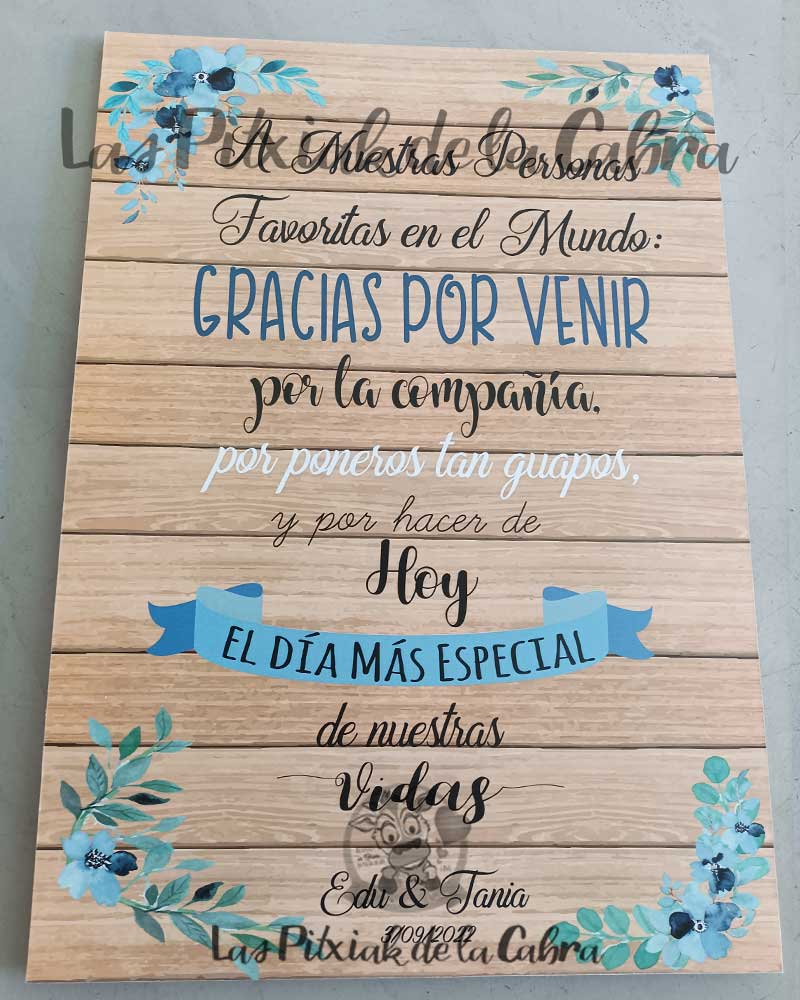 Las Pitxiak de la Cabra
A Nuestras Personas
Favoritas en el Mundo:
GRACIAS POR VENIR
por la compañía,
por poneros tan guapos,
y por hacer de
Hoy
EL DÍA MÁS ESPECIAL
de nuestras
Vidas
Edu & Tania
3/09/2022
Las Pitxiak de la Cabra